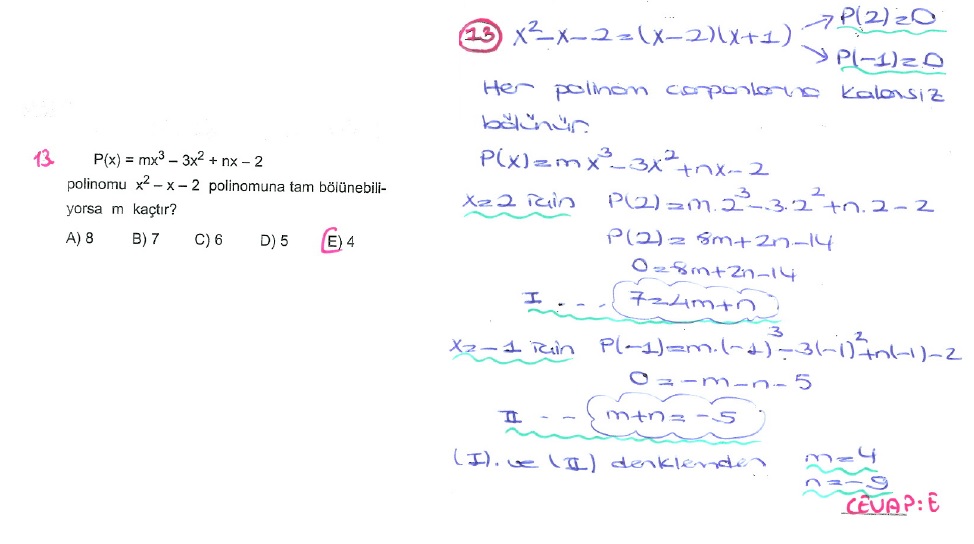 13 P(x) = mx³ – 3x² + nx – 2
polinomu x² – x – 2 polinomuna tam bölünebili-
yorsa m kaçtır?
A) 8 B) 7 C) 6 D) 5 E) 4
13 x²-x-2=(x-2)(x+1) → P(2)=0
→ P(-1)=0
Her polinom çarpanlarına kalansız
bölünür.
P(x)=mx³-3x²+nx-2
x=2 için P(2)=m.2³-3.2²+n.2-2
P(2)=8m+2n-14
0=8m+2n-14
I ... 7=4m+n
x=-1 için P(-1)=m.(-1)³-3(-1)²+n(-1)-2
0=-m-n-5
II -- m+n=-5
(I). ve (II) denklemden m=4
n=-9
CEVAP:E